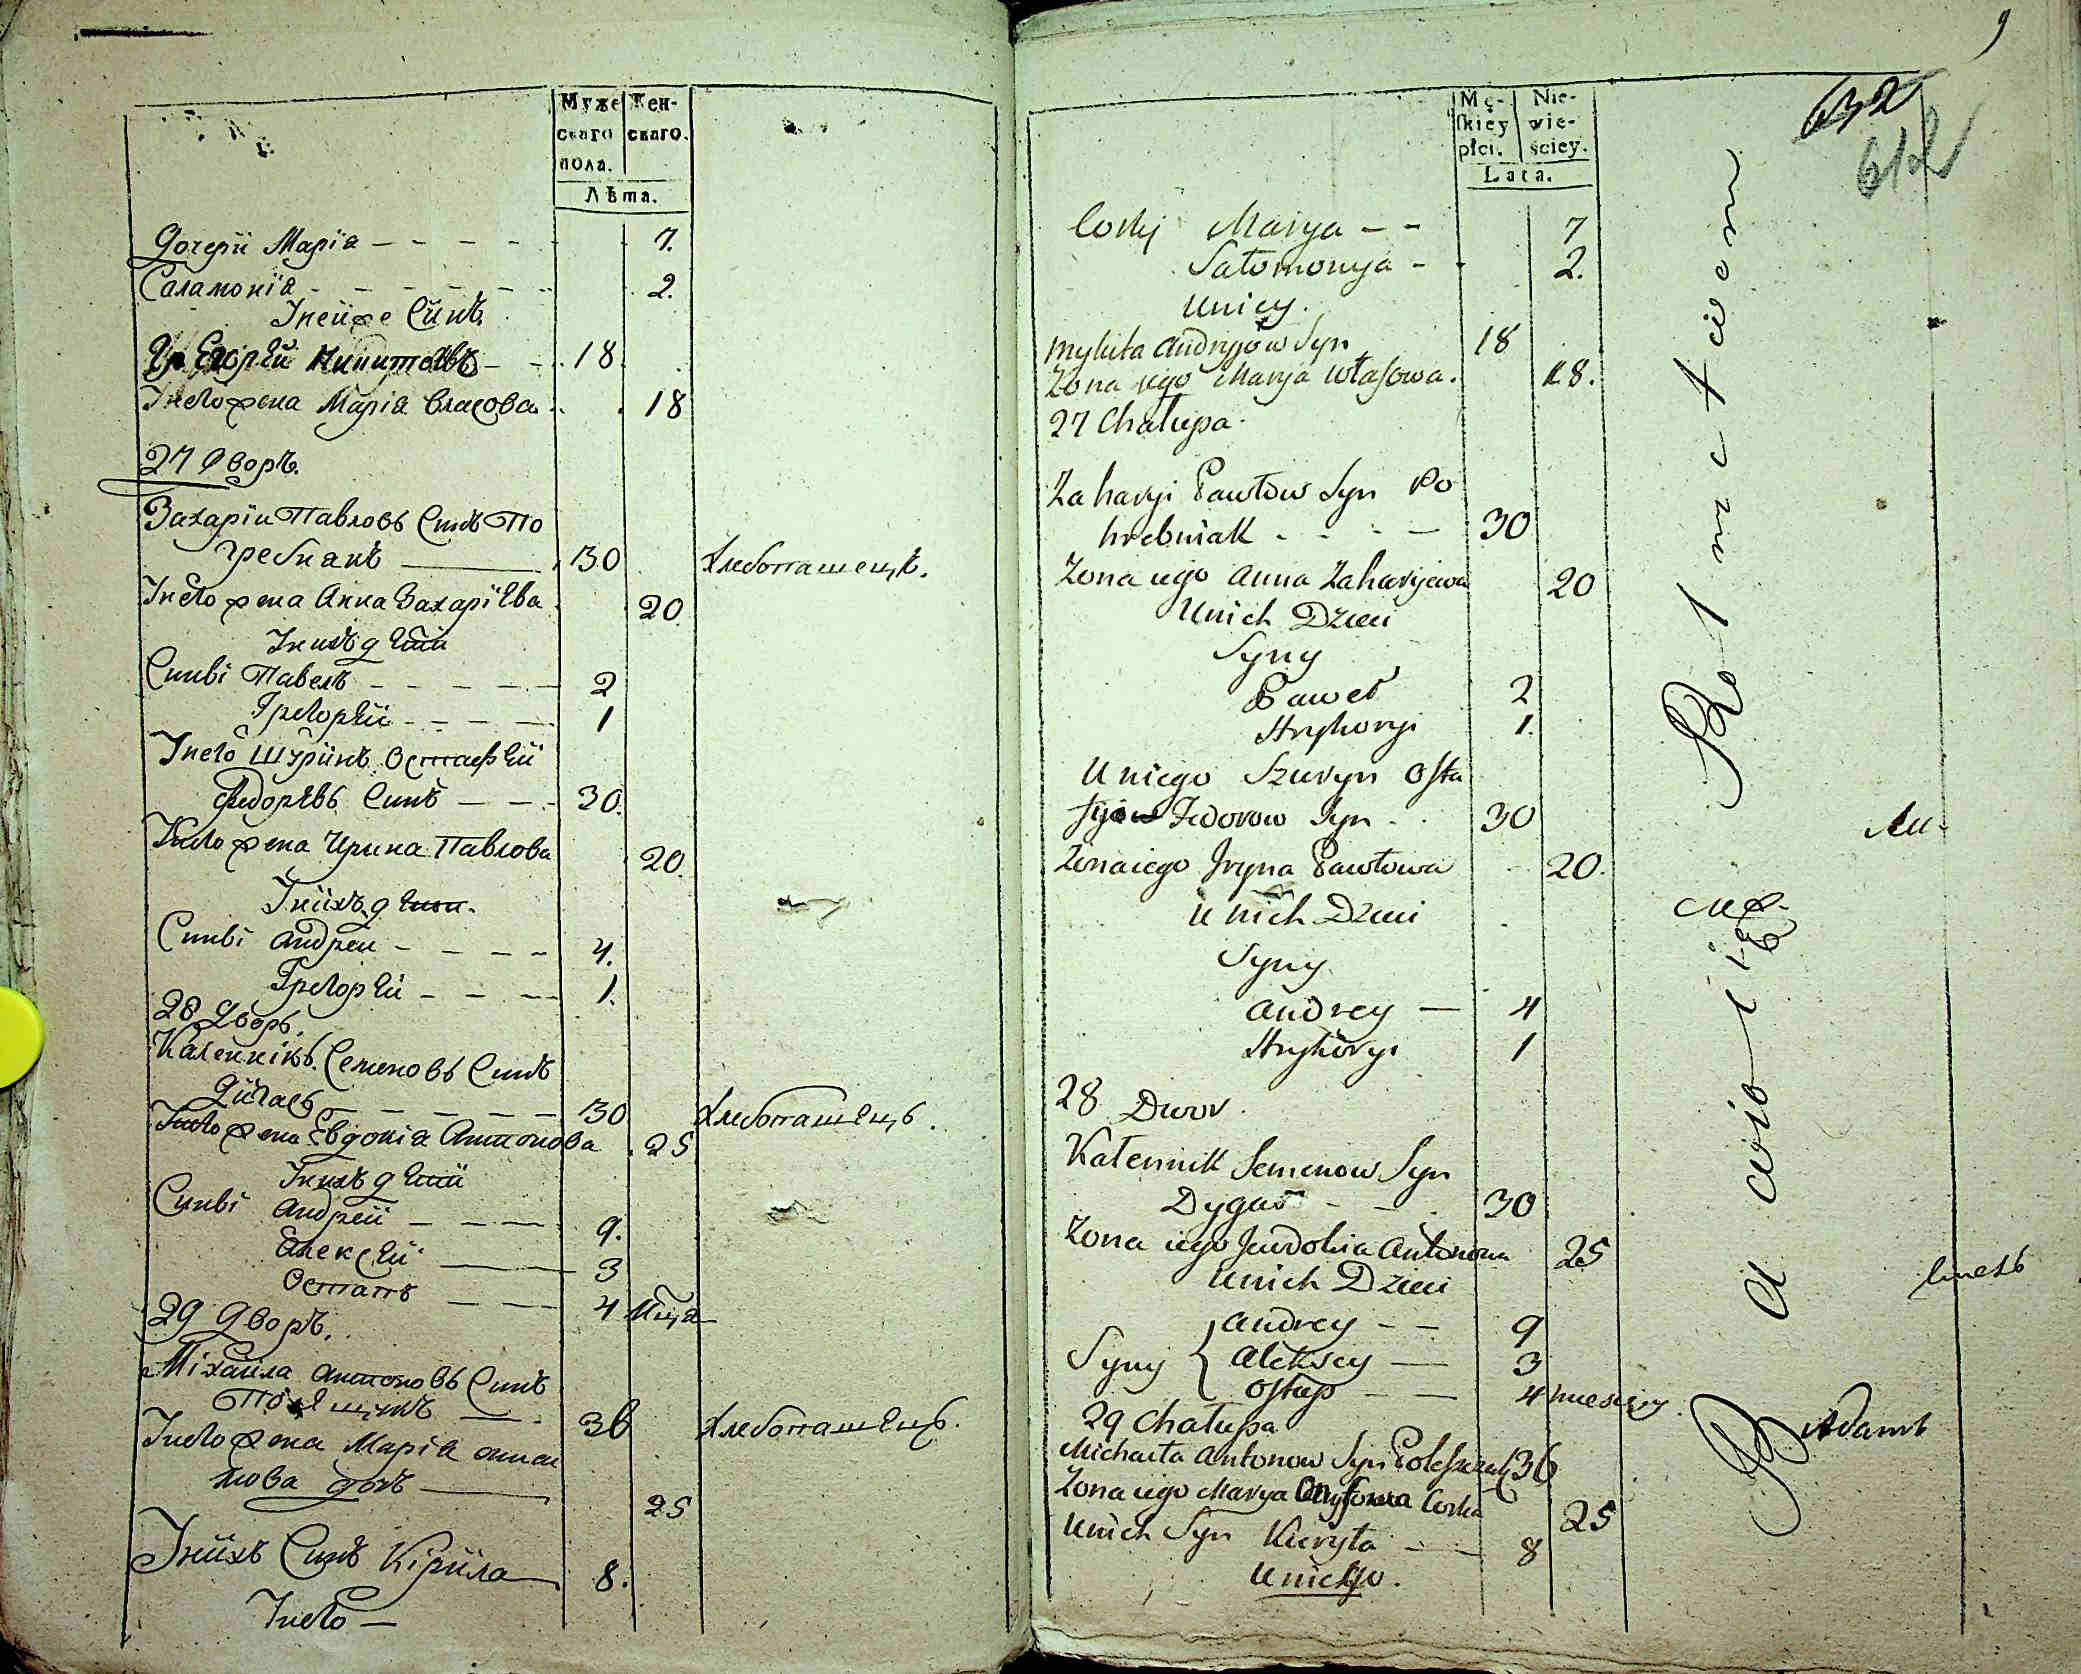 Муже
скаго
пола.
Жен-
скаго.
Лѣта.
Дочери Марія — 7.
Саламонія — 2.
Унеиже Синъ.
Григорѣй Микитовъ — 18
Унего жена Марія власова 18
27 дворъ.
Захаріи Павловъ Синъ По
гребнякъ — 30 Хлебопашецъ.
Унего жена Анна Захаріева 20
Унихъ дѣти
Сины Павелъ — 2
Григорѣй — 1
Унего Шуринъ Остафѣй
Федорѣвъ Синъ — 30.
Унего жена Ирина Павлова 20.
Унихъ дѣти.
Сины Андреи — 4.
Григорѣй — 1.
28 дворъ.
Каленикъ Семеновъ Синъ
Дигасъ — 30 Хлебопашѣцъ.
Унего жена Евдокія Антонова 25
Унихъ дѣти
Сины Андреи — 9.
Алексѣй — 3
Остапъ — 4 мца
29 дворъ.
Михаила Антоновъ Синъ
— 36 Хлебопашѣцъ.
Унего жена Марія
25
Унихъ Синъ Кирила 8.
Унего —
9
632
612
Mę-
skiey
płci.
Nie-
wie-
ściey.
Lata.
Corky Marya — 7
Sałomonya — 2.
Unicy.
Mykita Andryjow Syn 18
Zona iego Marya Własowa. 18.
27 Chałupa.
Zaharyi Pawłow Syn Po
hrebniak — 30
Zona iego Anna Zaharyiewa 20
Unich Dzieci
Syny
Paweł 2
Hryhoryi 1.
Uniego Szuryn Osta
Fedorow Syn 30
Zona iego Iryna Pawłowa 20.
Unich Dzieci
Syny
Andrey — 4
Hryhoryi 1
28 Dwor.
Kałennik Semenow Syn
Dygas — 30
Zona iego Jewdokia Antonowa 25
Unich Dzieci
Syny { Andrey — 9
Aleksey — 3
Ostap — 4 miesięcy
29 Chałupa
Michaiła Antonow Syn Poleszczuk 36
Zona iego Marya Corka 25
Unich Syn Kiryła — 8
Uniego.
Адамъ